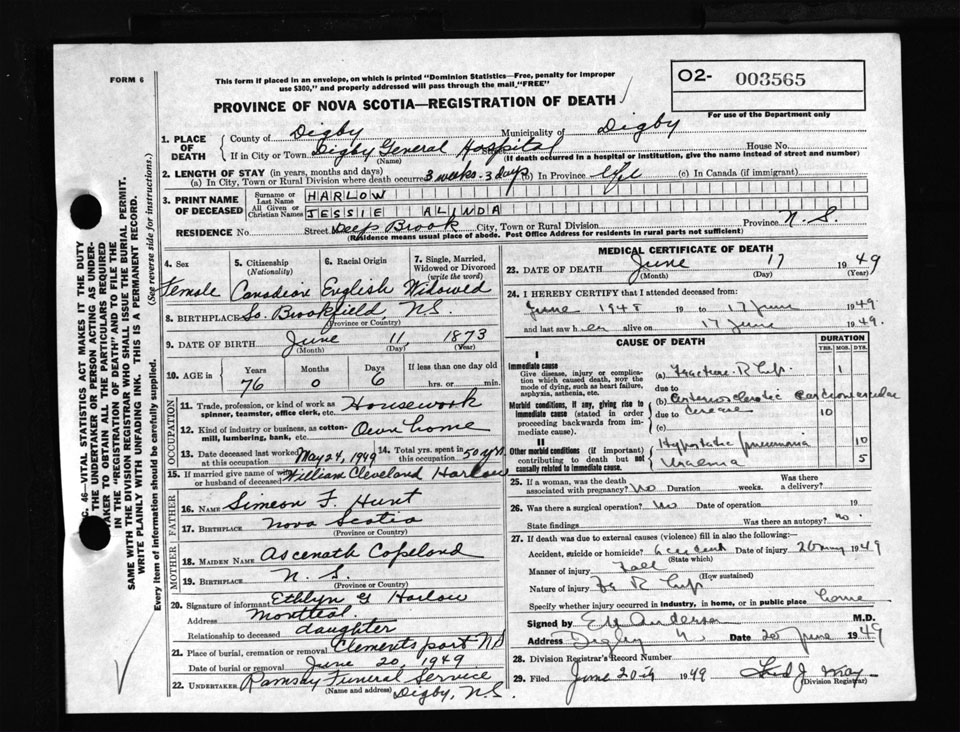 FORM 6
This form if placed in an envelope, on which is printed "Dominion Statistics—Free, penalty for improper
use $300," and properly addressed will pass through the mail "FREE"
O2- 003565
For use of the Department only
PROVINCE OF NOVA SCOTIA—REGISTRATION OF DEATH
1. PLACE OF DEATH County of Digby Municipality of Digby
If in City or Town Digby General Hospital Street House No.
(Name) (If death occurred in a hospital or institution, give the name instead of street and number)
2. LENGTH OF STAY (in years, months and days)
(a) In City, Town or Rural Division where death occurred 3 weeks - 3 days (b) In Province Life (c) In Canada (if immigrant)
3. PRINT NAME OF DECEASED Surname or Last Name HARLOW
All Given or Christian Names JESSIE ALINDA
RESIDENCE No. Street Deep Brook City, Town or Rural Division Province N.S.
(Residence means usual place of abode. Post Office Address for residents in rural parts not sufficient)
4. Sex 5. Citizenship (Nationality) 6. Racial Origin 7. Single, Married, Widowed or Divorced (write the word)
Female Canadian English Widowed
8. BIRTHPLACE So. Brookfield, N.S.
(Province or Country)
9. DATE OF BIRTH June 11, 1873
(Month) (Day) (Year)
10. AGE in Years Months Days If less than one day old
76 0 6 hrs. or min.
OCCUPATION
11. Trade, profession or kind of work as spinner, teamster, office clerk, etc. Housework
12. Kind of industry or business, as cotton-mill, lumbering, bank, etc. Own home
13. Date deceased last worked at this occupation May 24, 1949 14. Total yrs. spent in this occupation 50 yrs.
15. If married give name of wife or husband of deceased William Cleveland Harlow
FATHER
16. Name Simeon F. Hunt
17. Birthplace Nova Scotia
(Province or Country)
MOTHER
18. Maiden Name Ascenath Copeland
19. Birthplace N.S.
(Province or Country)
20. Signature of informant Ethlyn G Harlow
Address Montreal
Relationship to deceased daughter
21. Place of burial, cremation or removal Clementsport NS
Date of burial or removal June 20, 1949
22. Undertaker Ramsay Funeral Service
(Name and address) Digby, N.S.
MEDICAL CERTIFICATE OF DEATH
23. DATE OF DEATH June 17 1949
(Month) (Day) (Year)
24. I HEREBY CERTIFY that I attended deceased from:
June 1948 19 to 17 June 1949
and last saw her alive on 17 June 1949.
CAUSE OF DEATH DURATION
YRS. MOS. DYS.
I
Immediate cause
Give disease, injury or complication which caused death, NOT the mode of dying, such as heart failure, asphyxia, asthenia, etc.
(a) Fracture R hip. 1
due to
Morbid conditions, if any, giving rise to immediate cause (stated in order proceeding backwards from immediate cause).
(b) arteriosclerotic cardiovascular
due to disease 10
(c)
II
Other morbid conditions (if important) contributing to death but not causally related to immediate cause.
Hypostatic pneumonia 10
Uraemia 5
25. If a woman, was the death associated with pregnancy? No Duration weeks. Was there a delivery?
26. Was there a surgical operation? No Date of operation 19
State findings Was there an autopsy? no.
27. If death was due to external causes (violence) fill in also the following:
Accident, suicide or homicide? accident Date of injury 26 May 1949
(State which)
Manner of injury Fall
(How sustained)
Nature of injury Fx R hip
Specify whether injury occurred in industry, in home, or in public place home
Signed by Anderson M.D.
Address Digby Date 20 June 1949
28. Division Registrar's Record Number
29. Filed June 20th 1949 Fred J. May
(Division Registrar)
46—VITAL STATISTICS ACT MAKES IT THE DUTY
THE UNDERTAKER OR PERSON ACTING AS UNDER-
TAKER TO OBTAIN ALL THE PARTICULARS REQUIRED
IN THE "REGISTRATION OF DEATH" AND TO FILE THE
SAME WITH THE DIVISION REGISTRAR WHO SHALL ISSUE THE BURIAL PERMIT.
WRITE PLAINLY WITH UNFADING INK. THIS IS A PERMANENT RECORD.
Every item of information should be carefully supplied. (See reverse side for instructions.)